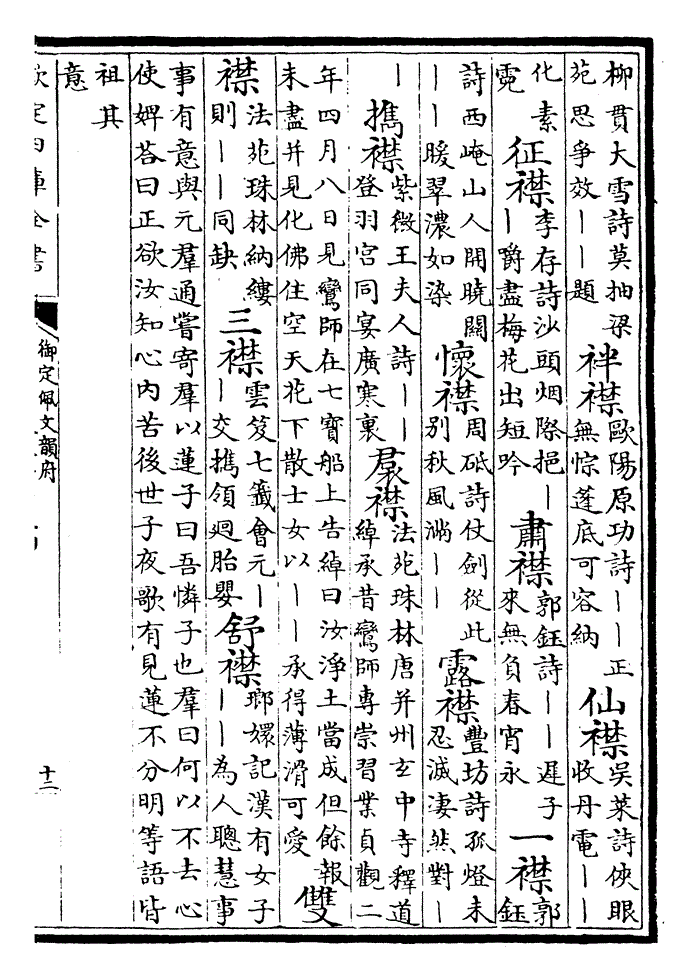 柳貫大雪詩莫抽梁
苑思爭效——題
袢襟
歐陽原功詩——正
無悰蓬底可容納
仙襟
吳萊詩俠眼
收丹電——
化素
霓
征襟
李存詩沙頭烟際挹—
—爵盡梅花出短吟
肅襟
郭鈺詩——遲子
來無負春宵永
一襟
郭
鈺
詩西崦山人開曉闗
——暖翠濃如染
懷襟
周砥詩仗劍從此
别秋風滿——
露襟
豐坊詩孤燈未
忍滅凄然對—
—
攜襟
紫微王夫人詩——
登羽宮同宴廣寒裏
裠襟
法苑珠林唐并州玄中寺釋道
綽承昔鸞師專崇習業貞觀二
年四月八日見鸞師在七寶船上告綽曰汝淨土當成但餘報
未盡并見化佛住空天花下散士女以——承得薄滑可愛
雙
襟
法苑珠林納縷
則——同缺
三襟
雲笈七籤會元—
—交攜領廻胎嬰
舒襟
瑯嬛記漢有女子
——為人聰慧事
事有意與元羣通嘗寄羣以蓮子曰吾憐子也羣曰何以不去心
使婢荅曰正欲汝知心内苦後世子夜歌有見蓮不分明等語皆
祖其
意
欽定四庫全書
御定佩文韻府
十二